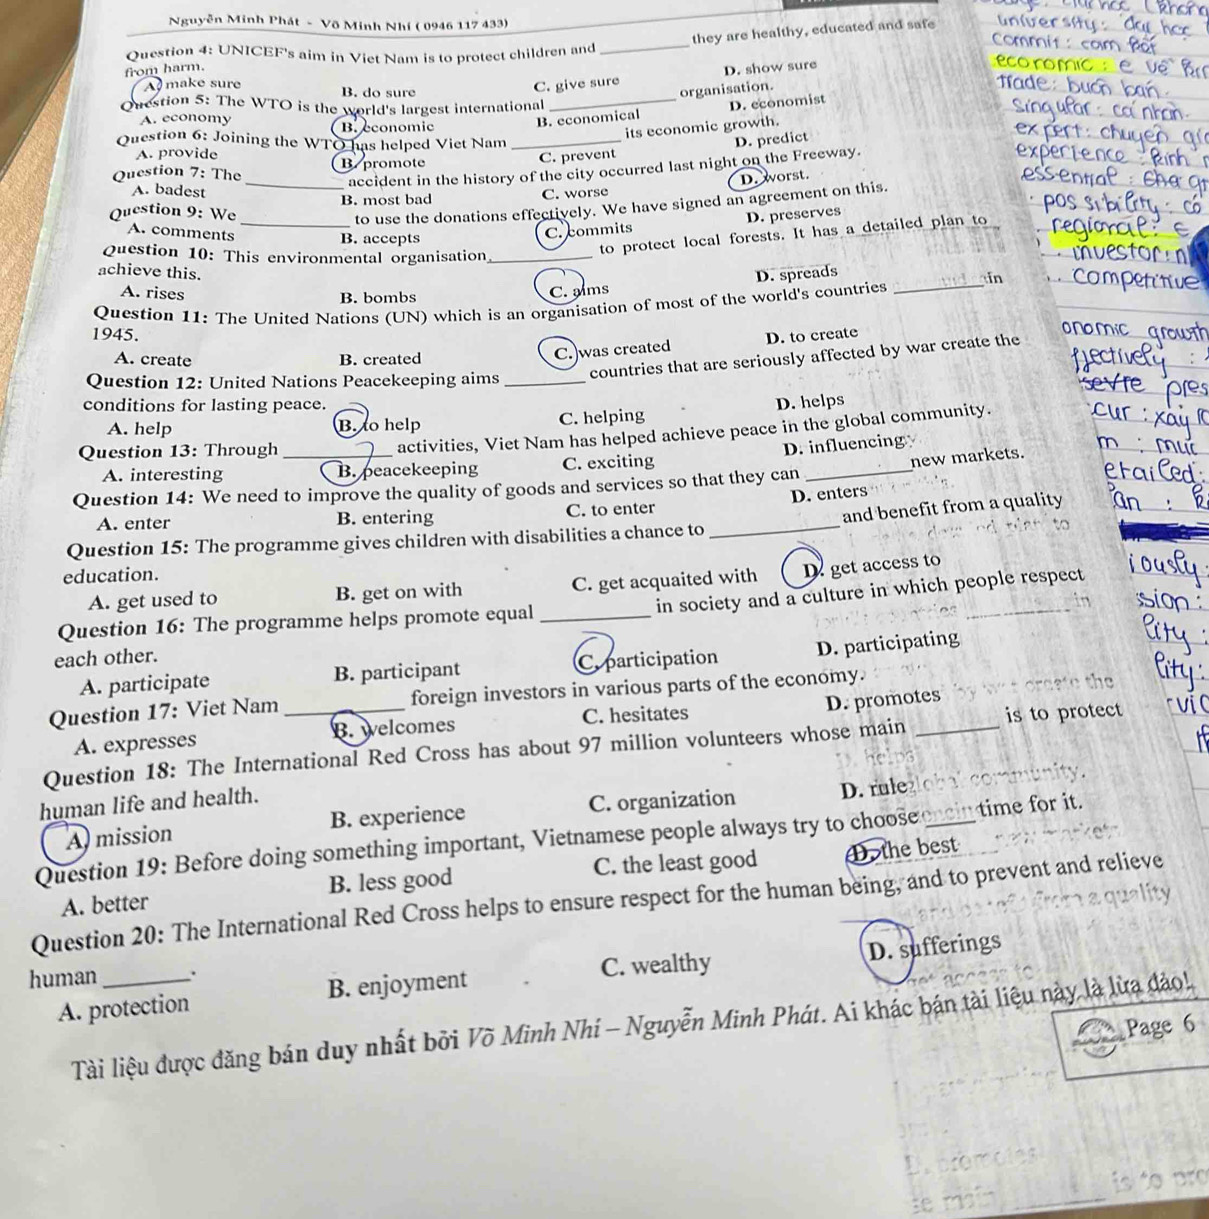 Nguyễn Minh Phát - Võ Minh Nhí ( 0946 117 433)
Question 4: UNICEF's aim in Viet Nam is to protect children and ________ they are healthy, educated and safe
from harm.
A. make sure B. do sure C. give sure D. show sure
Question 5: The WTO is the world's largest international ________ organisation.
A. economy B. economic B. economical D. economist
Question 6: Joining the WTO has helped Viet Nam ________ its economic growth.
A. provide B. promote C. prevent D. predict
Question 7: The ________ accident in the history of the city occurred last night on the Freeway.
A. badest B. most bad C. worse D. worst.
Question 9: We ________ to use the donations effectively. We have signed an agreement on this.
A. comments B. accepts C. commits D. preserves
Question 10: This environmental organisation ________ to protect local forests. It has a detailed plan to
achieve this.
A. rises B. bombs C. aims D. spreads
Question 11: The United Nations (UN) which is an organisation of most of the world's countries ________ in
1945.
A. create B. created C. was created D. to create
Question 12: United Nations Peacekeeping aims ________ countries that are seriously affected by war create the
conditions for lasting peace.
A. help B. to help C. helping D. helps
Question 13: Through ________ activities, Viet Nam has helped achieve peace in the global community.
A. interesting B. peacekeeping C. exciting D. influencing
Question 14: We need to improve the quality of goods and services so that they can ________ new markets.
A. enter B. entering C. to enter D. enters
Question 15: The programme gives children with disabilities a chance to ________ and benefit from a quality
education.
A. get used to B. get on with C. get acquaited with D. get access to
Question 16: The programme helps promote equal ________ in society and a culture in which people respect
each other.
A. participate B. participant C. participation D. participating
Question 17: Viet Nam ________ foreign investors in various parts of the economy.
A. expresses B. welcomes C. hesitates D. promotes
Question 18: The International Red Cross has about 97 million volunteers whose main ________ is to protect
human life and health.
A. mission B. experience C. organization D. rule
Question 19: Before doing something important, Vietnamese people always try to choose ________ time for it.
A. better B. less good C. the least good D. the best
Question 20: The International Red Cross helps to ensure respect for the human being, and to prevent and relieve
human ________.
A. protection B. enjoyment C. wealthy D. sufferings
Tài liệu được đăng bán duy nhất bởi Võ Minh Nhí – Nguyễn Minh Phát. Ai khác bán tài liệu này là lừa đảo!
Page 6
university: đại học
commit: cam kết
economic:
trade: buôn bán.
singular: cá nhân.
expert: chuyên
experience
essential
possibility: có
regional:
investor:
competitive
onomic growth
ffectively :
cur : xảy
m : mức
iously
ssion:
lity :
lity: